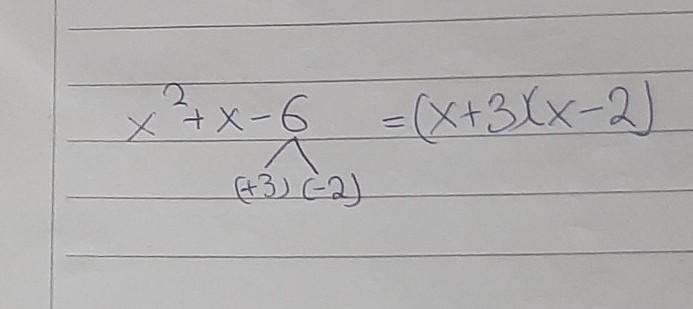 x²+x-6 =(x+3)(x-2)
(+3) (-2)